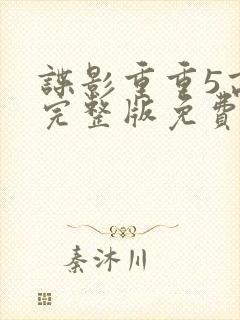 諜影重重5高
完整版免費
秦沐川